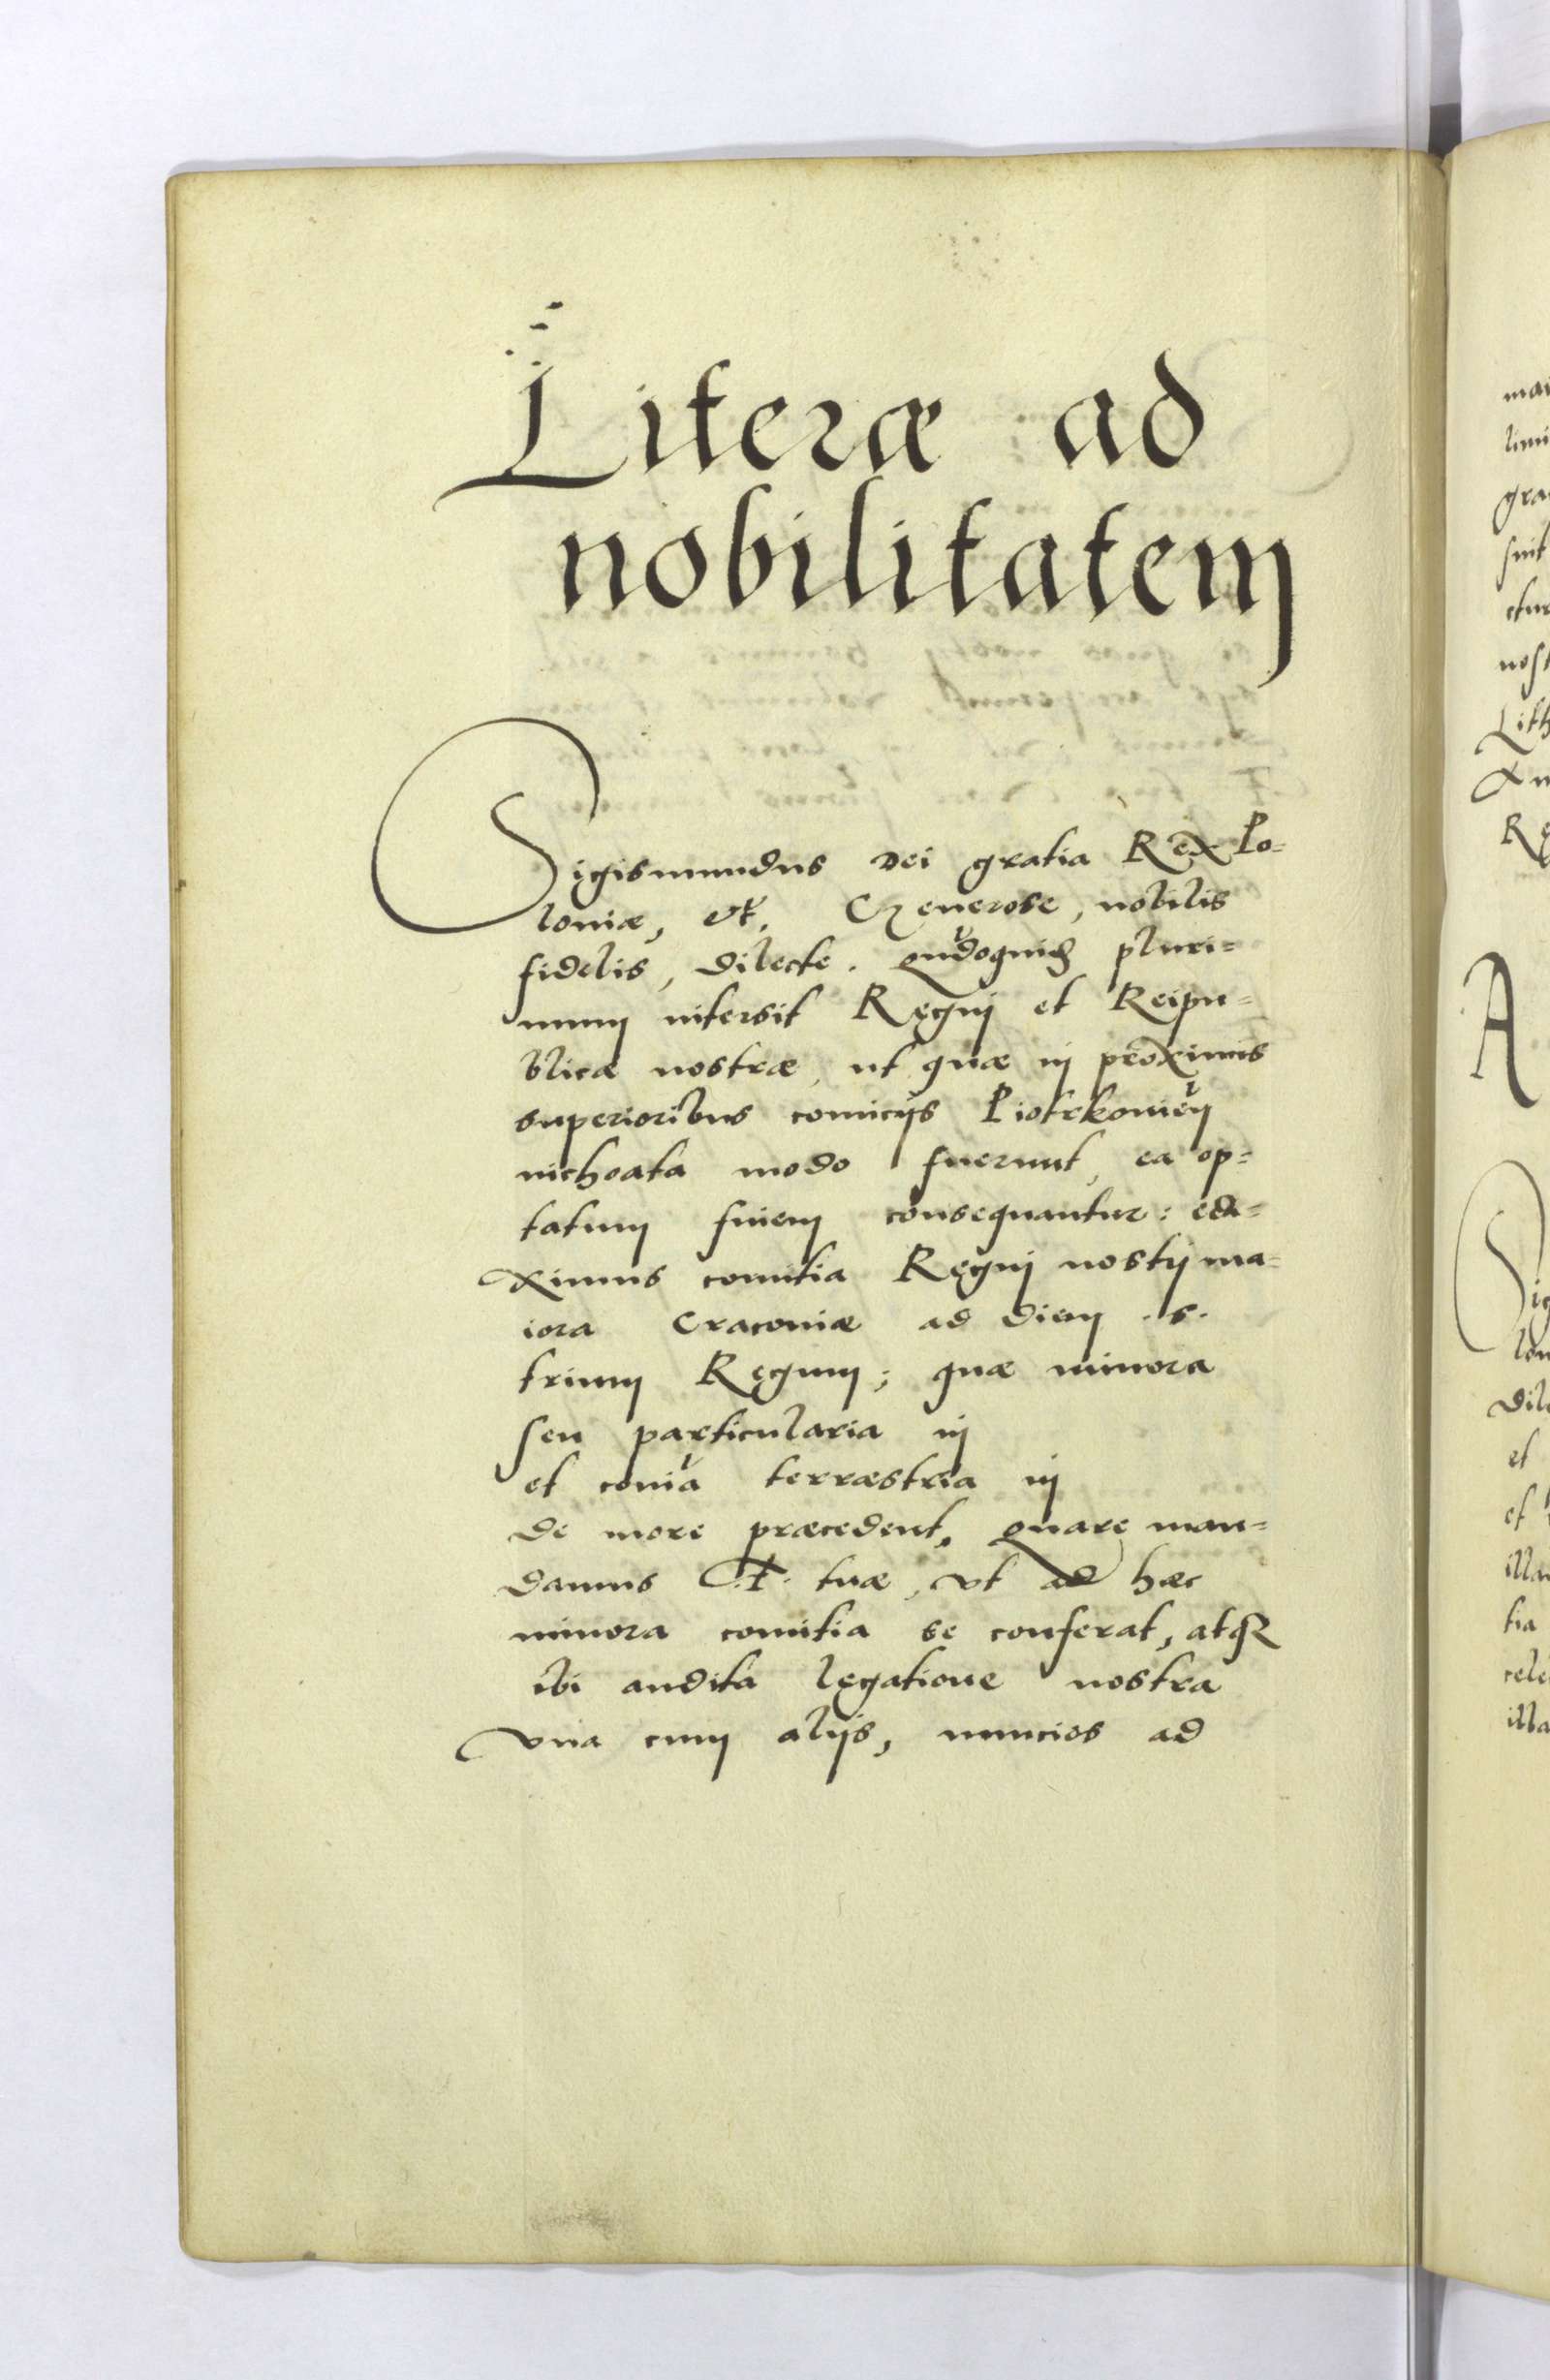 Literæ ad
nobilitatem
Sigismundus Dei gratia Rex Po=
loniæ, etc. Generose, nobilis
fidelis, dilecte. pluri=
mum intersit Regnj et Reipu=
blicæ nostræ, ut quæ in proximis
superioribus comicijs
inchoata modo fuerunt, ea op=
tatum finem consequantur: edi=
ximus comitia Regnj nostrj ma=
iora Cracoviæ ad diem .s.
trium Regum; quæ minora
seu particularia in
et terræstria in
de more præcedent. Quare man=
damus .F. tuæ, vt ad hæc
minora comitia se conferat, atq3
ibi audita legatione nostra
vna cum alijs, nuncios ad
mai
limi
gra
sint
ctur
nost
Lith
Re
A
Sig
lon
dile
et
et
illa
tia
cele
illa